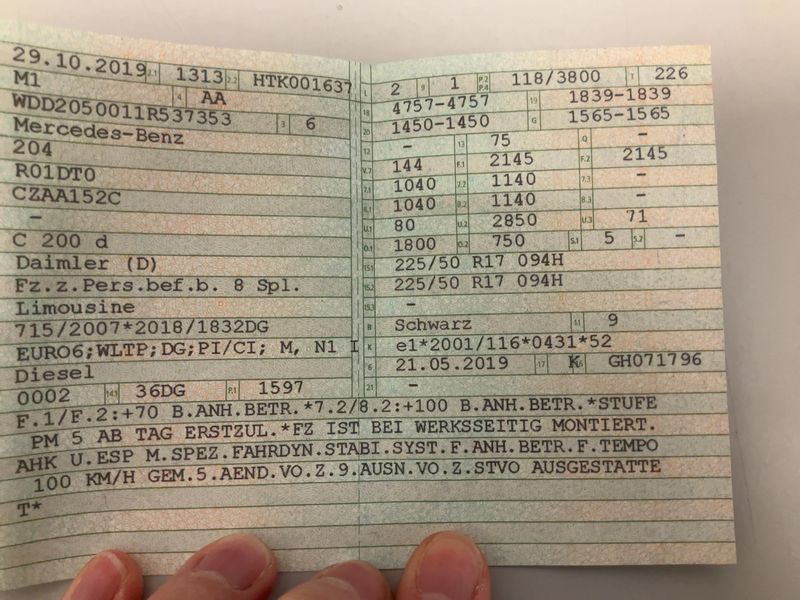 29.10.2019 2.1 1313 2.2 HTK001637
M1 4 AA
WDD2050011R537353 3 6
Mercedes-Benz
204
R01DT0
CZAA152C
-
C 200 d
Daimler (D)
Fz.z.Pers.bef.b. 8 Spl.
Limousine
715/2007*2018/1832DG
EURO6;WLTP;DG;PI/CI; M, N1 I
Diesel
0002 14.1 36DG P.1 1597
L 2 9 1 P.2 P.4 118/3800 T 226
18 4757-4757 19 1839-1839
20 1450-1450 G 1565-1565
12 - 13 75 Q -
V.7 144 F.1 2145 F.2 2145
7.1 1040 7.2 1140 7.3 -
8.1 1040 8.2 1140 8.3 -
U.1 80 U.2 2850 U.3 71
O.1 1800 O.2 750 S.1 5 S.2 -
15.1 225/50 R17 094H
15.2 225/50 R17 094H
15.3 -
R Schwarz 11 9
K e1*2001/116*0431*52
6 21.05.2019 17 K 16 GH071796
21 -
F.1/F.2:+70 B.ANH.BETR.*7.2/8.2:+100 B.ANH.BETR.*STUFE
PM 5 AB TAG ERSTZUL.*FZ IST BEI WERKSSEITIG MONTIERT.
AHK U.ESP M.SPEZ.FAHRDYN.STABI.SYST.F.ANH.BETR.F.TEMPO
100 KM/H GEM.5.AEND.VO.Z.9.AUSN.VO.Z.STVO AUSGESTATTE
T*